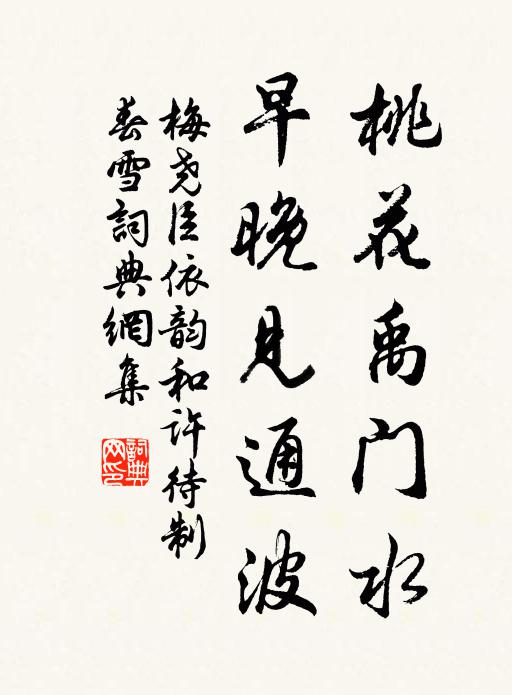 桃花禹门水
早晚见通波
梅尧臣依韵和许待制
春雪詞典網集
詞典
网印